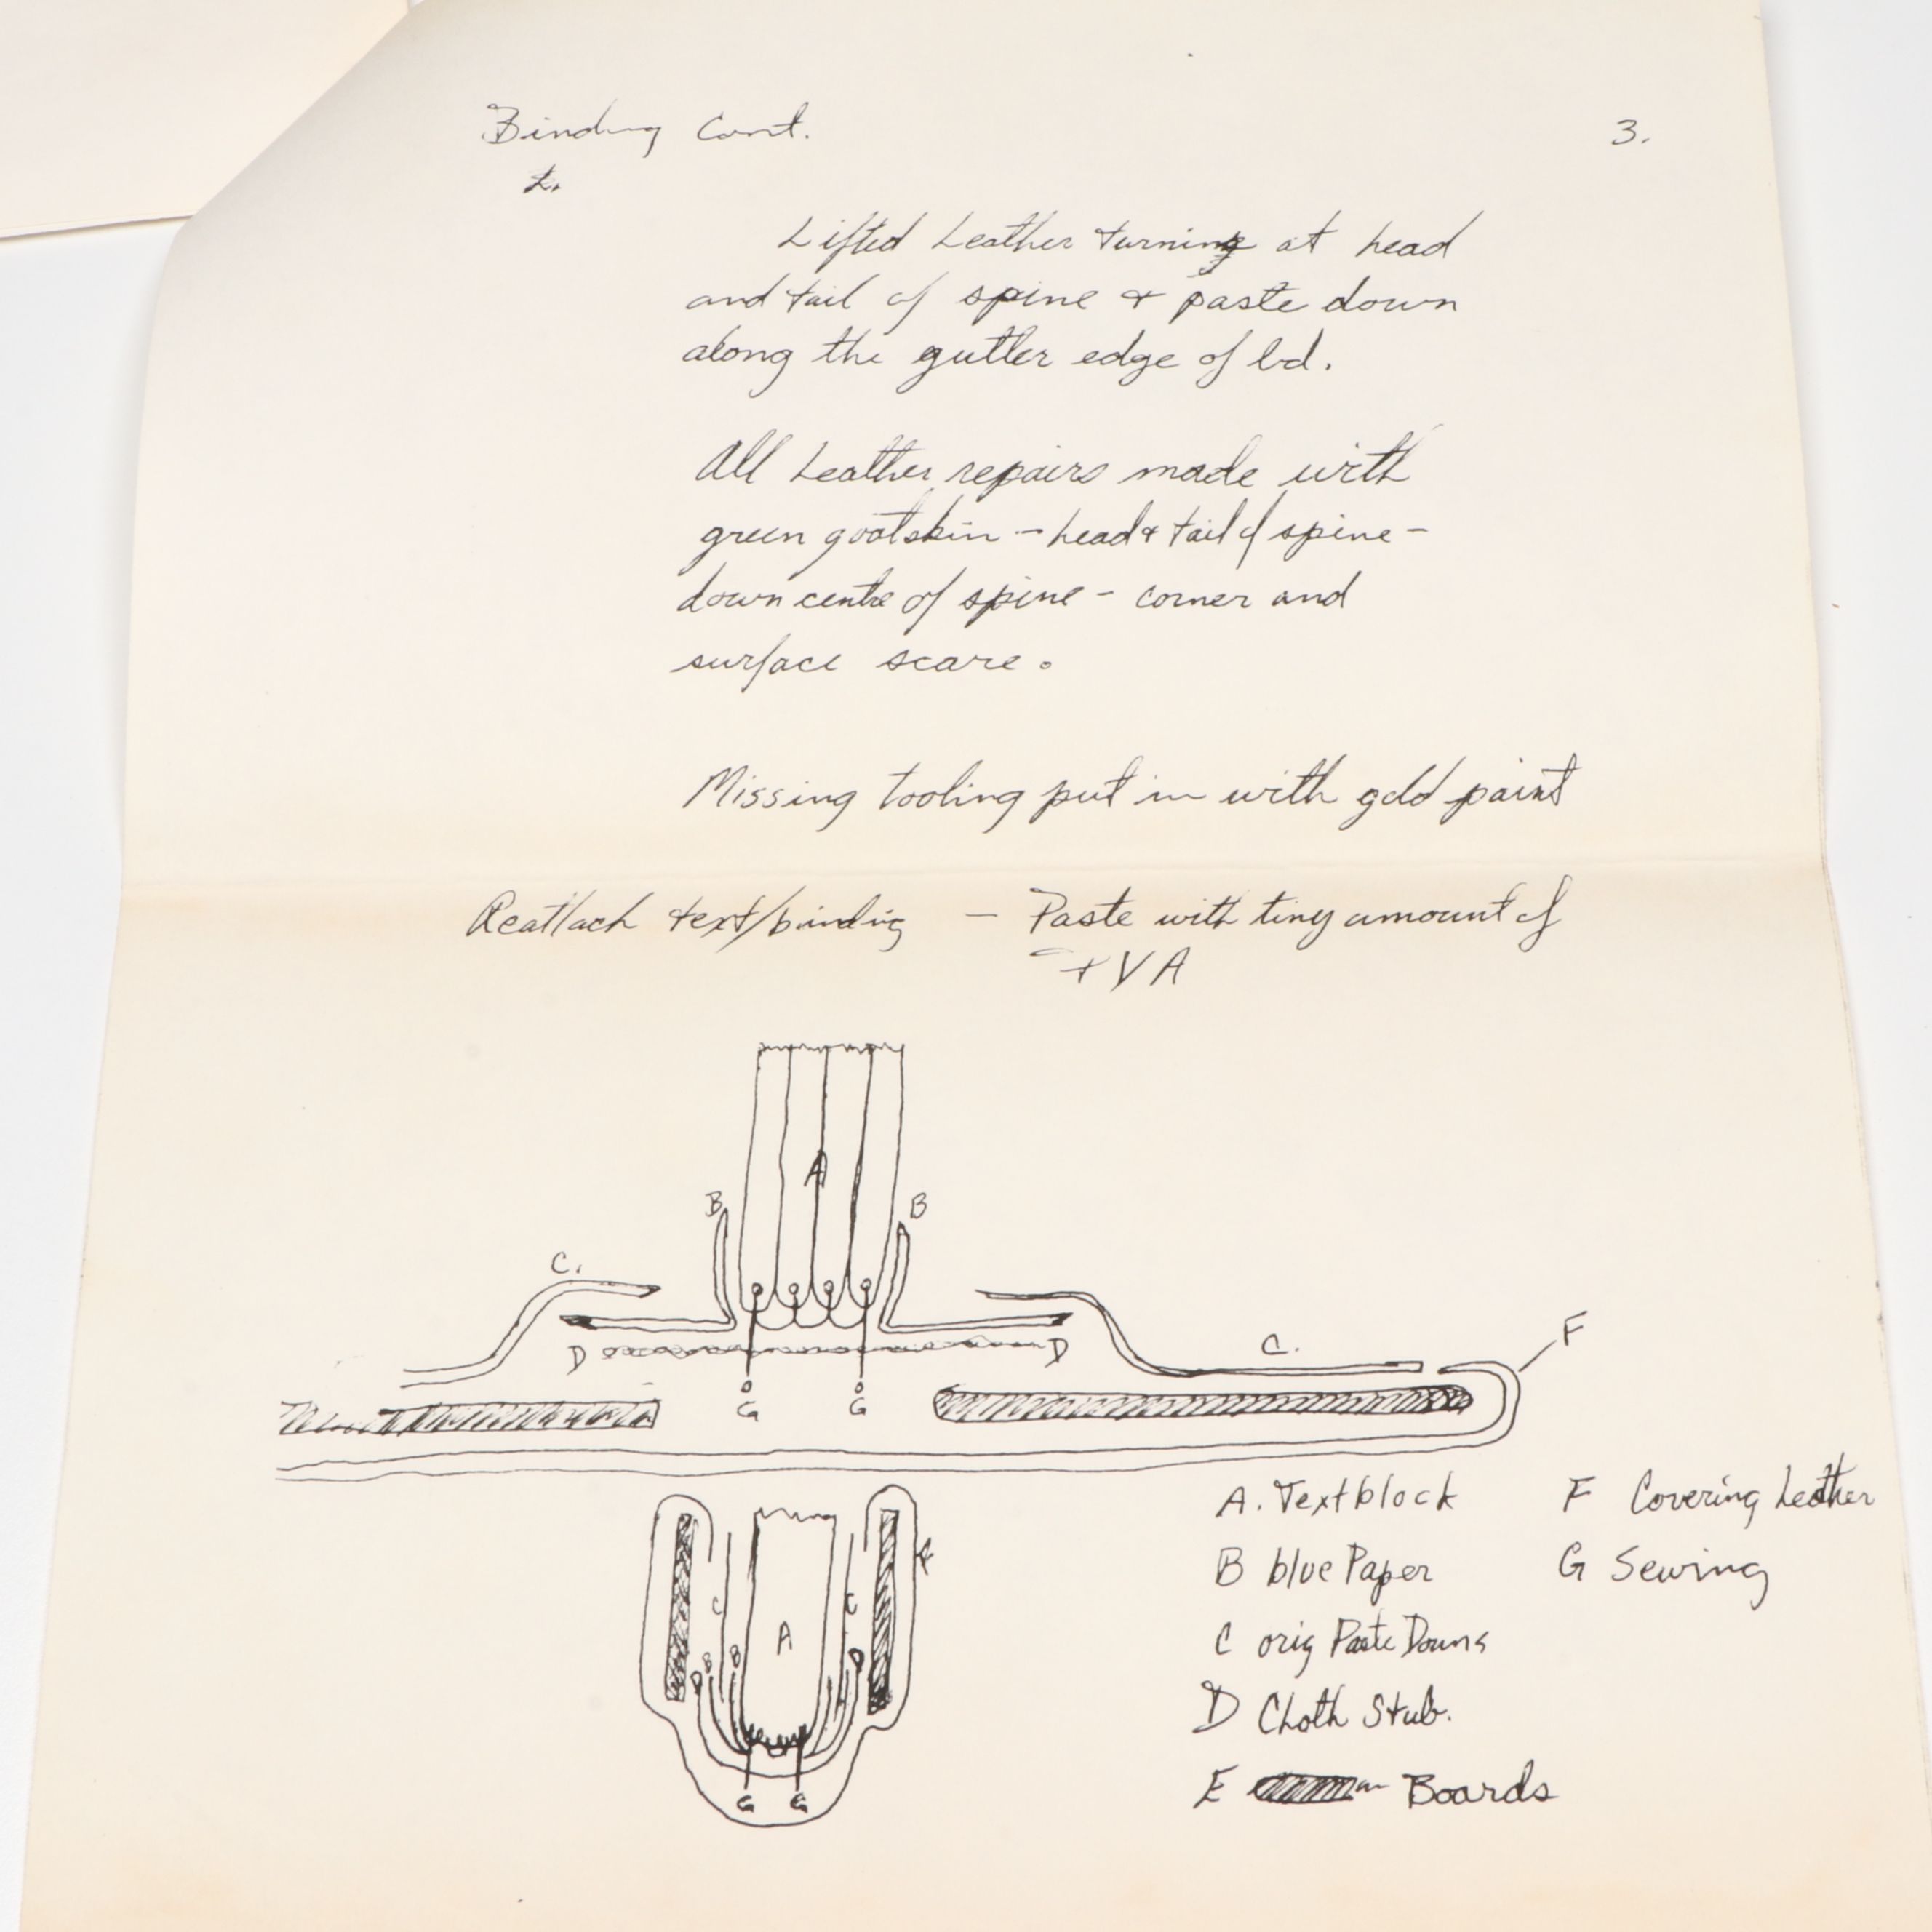 Binding Cont.
3.
Lifted Leather turning at head
and tail of spine + paste down
along the gutter edge of bd.
All Leather repairs made with
green goatskin - head + tail of spine -
down centre of spine - corner and
surface scare.
Missing tooling put in with gold paint
Reattach text/binding — Paste with tiny amount of
PVA
A
B
B
C.
D
D
C.
F
G
G
A. Textblock
F Covering Leather
B blue Paper
G Sewing
C orig Paste Downs
D Cloth Stub.
E Boards
F
C
C
A
D
B
B
D
G
G